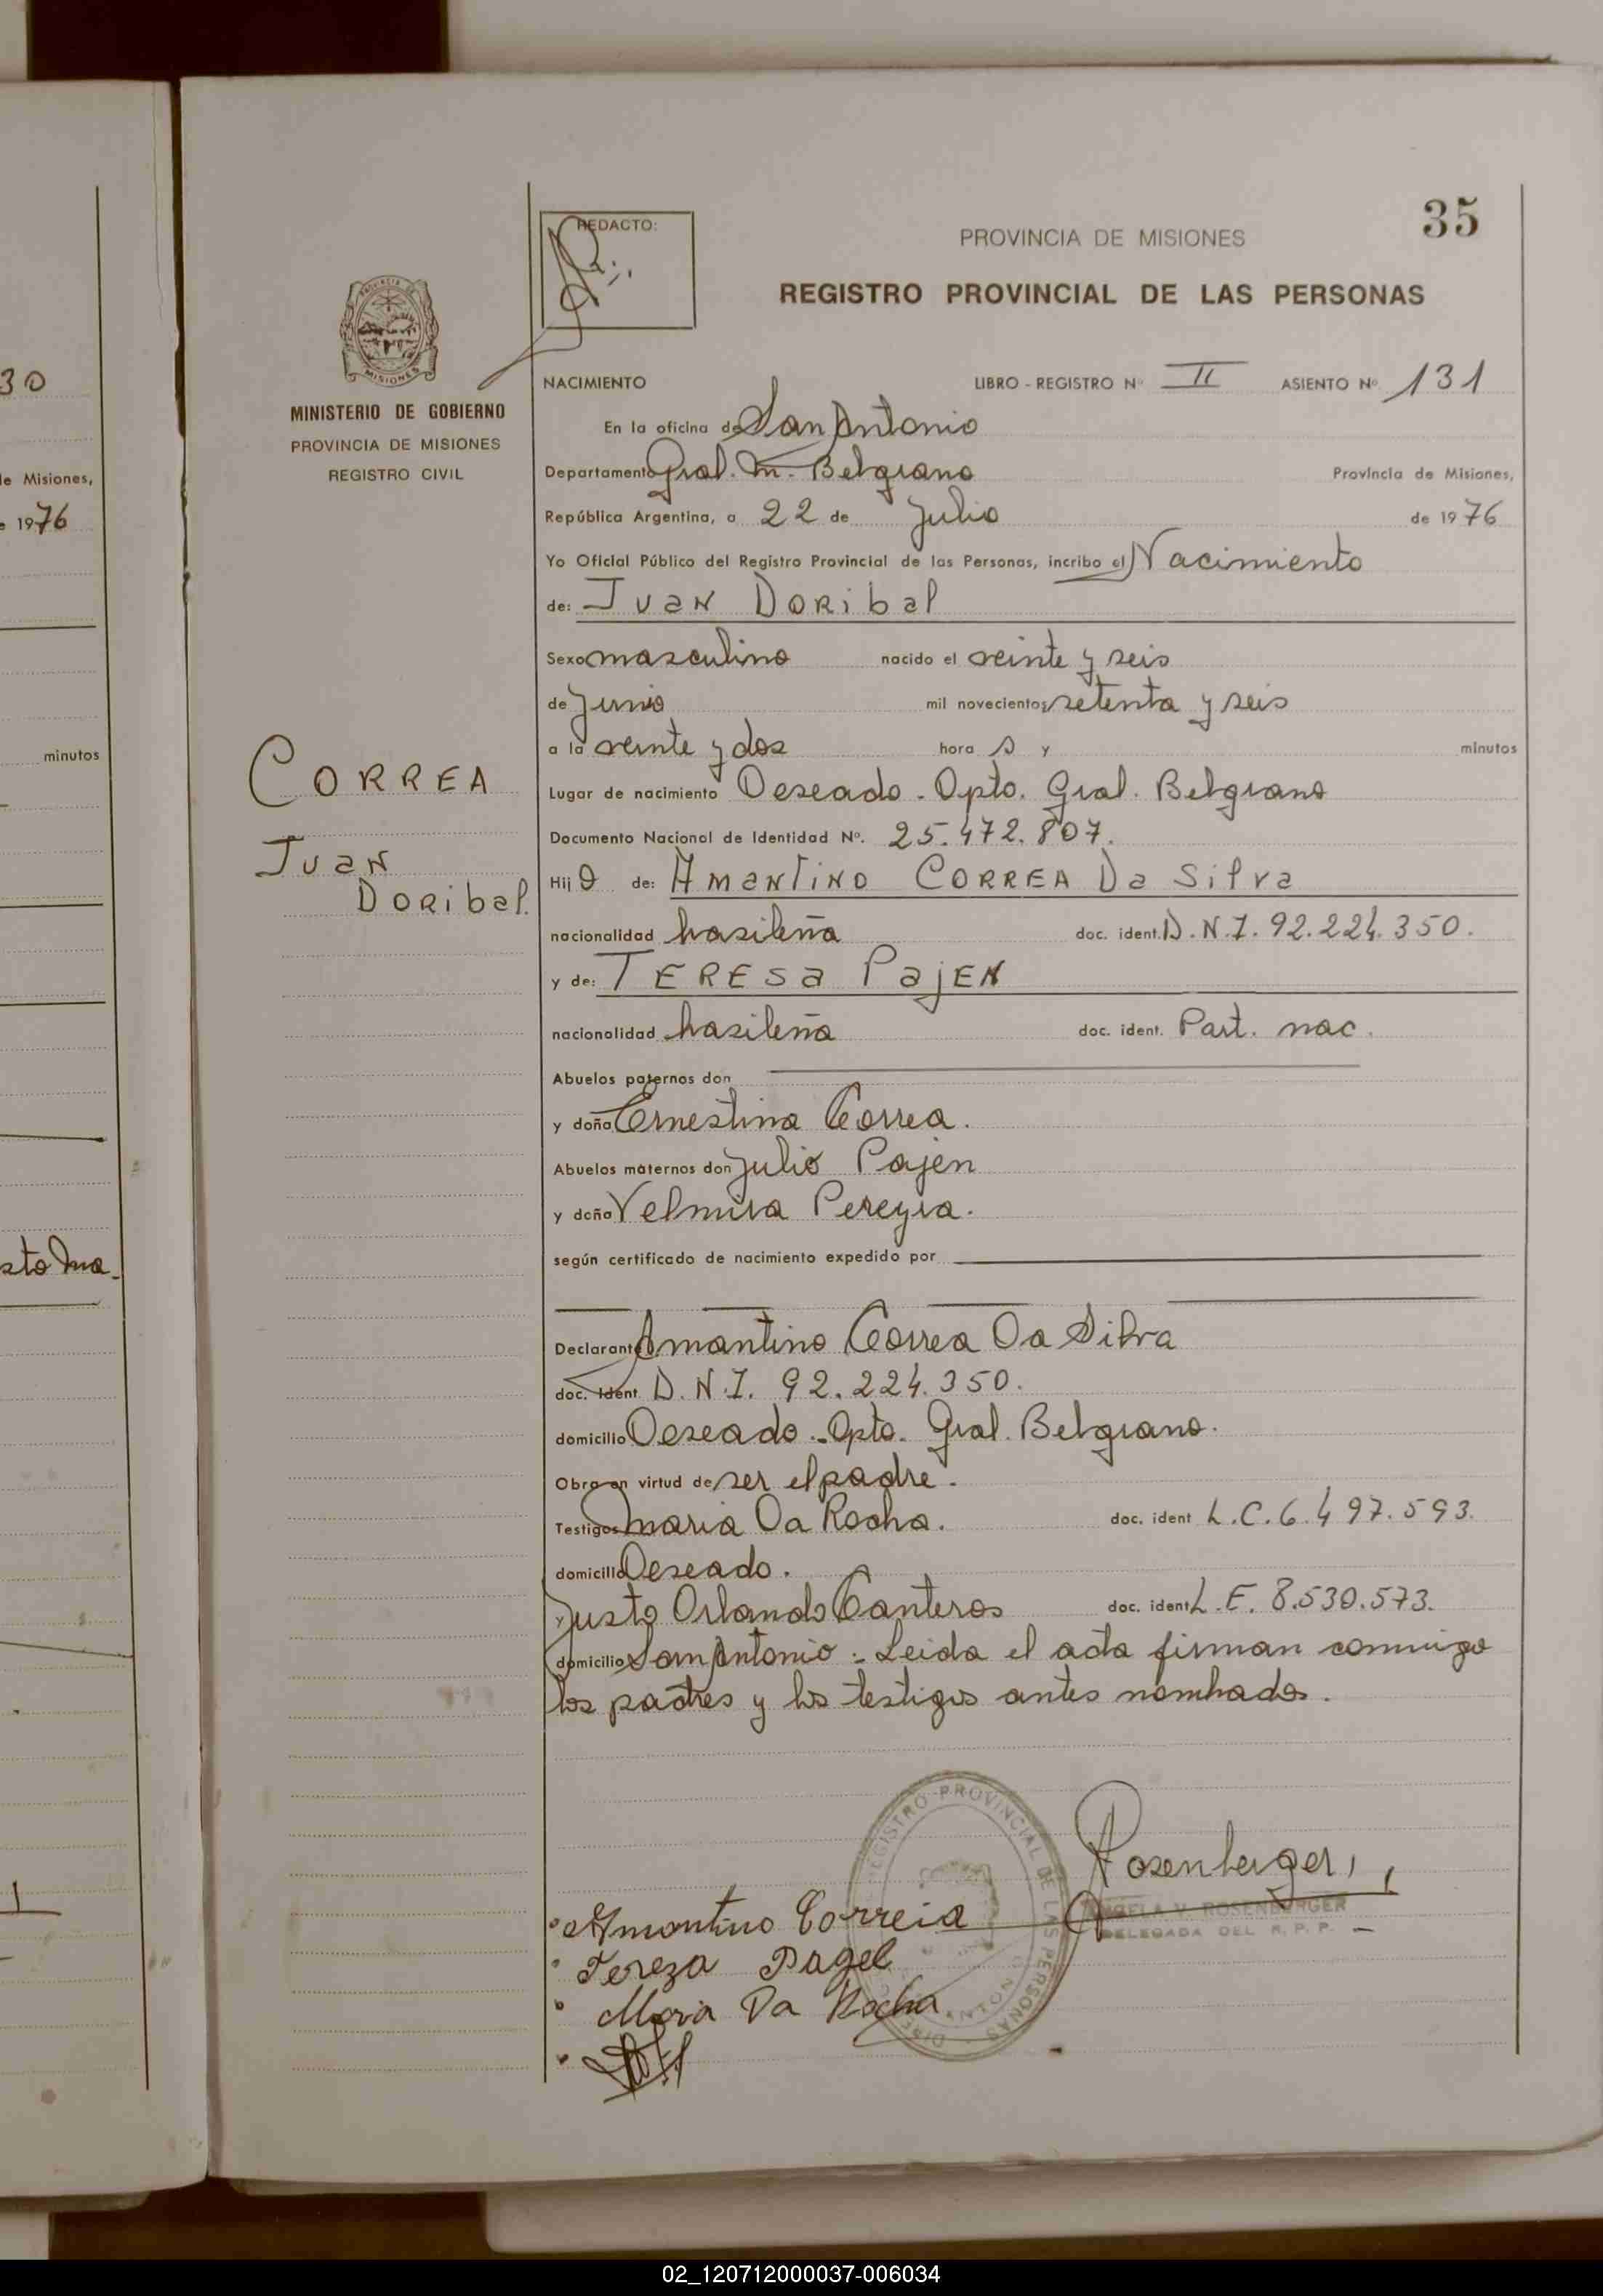 30
de Misiones,
de 1976
minutos
35
REDACTO:
PROVINCIA DE MISIONES
REGISTRO PROVINCIAL DE LAS PERSONAS
PROVINCIA DE
MISIONES
MINISTERIO DE GOBIERNO
PROVINCIA DE MISIONES
REGISTRO CIVIL
NACIMIENTO LIBRO - REGISTRO Nº II ASIENTO Nº 131
En la oficina de San Antonio
Departamento Gral. M. Belgrano Provincia de Misiones,
República Argentina, a 22 de Julio de 1976
Yo Oficial Público del Registro Provincial de las Personas, incribo el Nacimiento
de: Juan Doribal
Sexo masculino nacido el veinte y seis
de Junio mil novecientos setenta y seis
a la veinte y dos hora s y minutos
CORREA
Juan
Doribal.
Lugar de nacimiento Deseado - Dpto. Gral. Belgrano
Documento Nacional de Identidad Nº. 25.472.807.
Hij o de: Amantino CORREA Da Silva
nacionalidad brasileña doc. ident. D.N.I. 92.224.350.
y de: TERESA PajEN
nacionalidad brasileña doc. ident. Part. nac.
Abuelos paternos don
y doña Ernestina Correa.
Abuelos maternos don Julio Pajen
y doña Velmira Pereyra.
según certificado de nacimiento expedido por
Declarante Amantino Correa Da Silva
doc. ident. D.N.I. 92.224.350.
domicilio Deseado - Dpto. Gral. Belgrano.
Obra en virtud de ser el padre.
Testigos Maria Da Rocha. doc. ident L.C. 6.497.593.
domicilio Deseado.
y Justo Orlando Canteros doc. ident L.E. 8.530.573.
domicilio San Antonio - Leida el acta firman conmigo
los padres y los testigos antes nombrados.
REGISTRO PROVINCIAL DE LAS PERSONAS
Rosenberger
ANGELA V. ROSENBERGER
DELEGADA DEL R. P. P.
Amantino Correia
Tereza Pagel
Maria Da Rocha
02_120712000037-006034